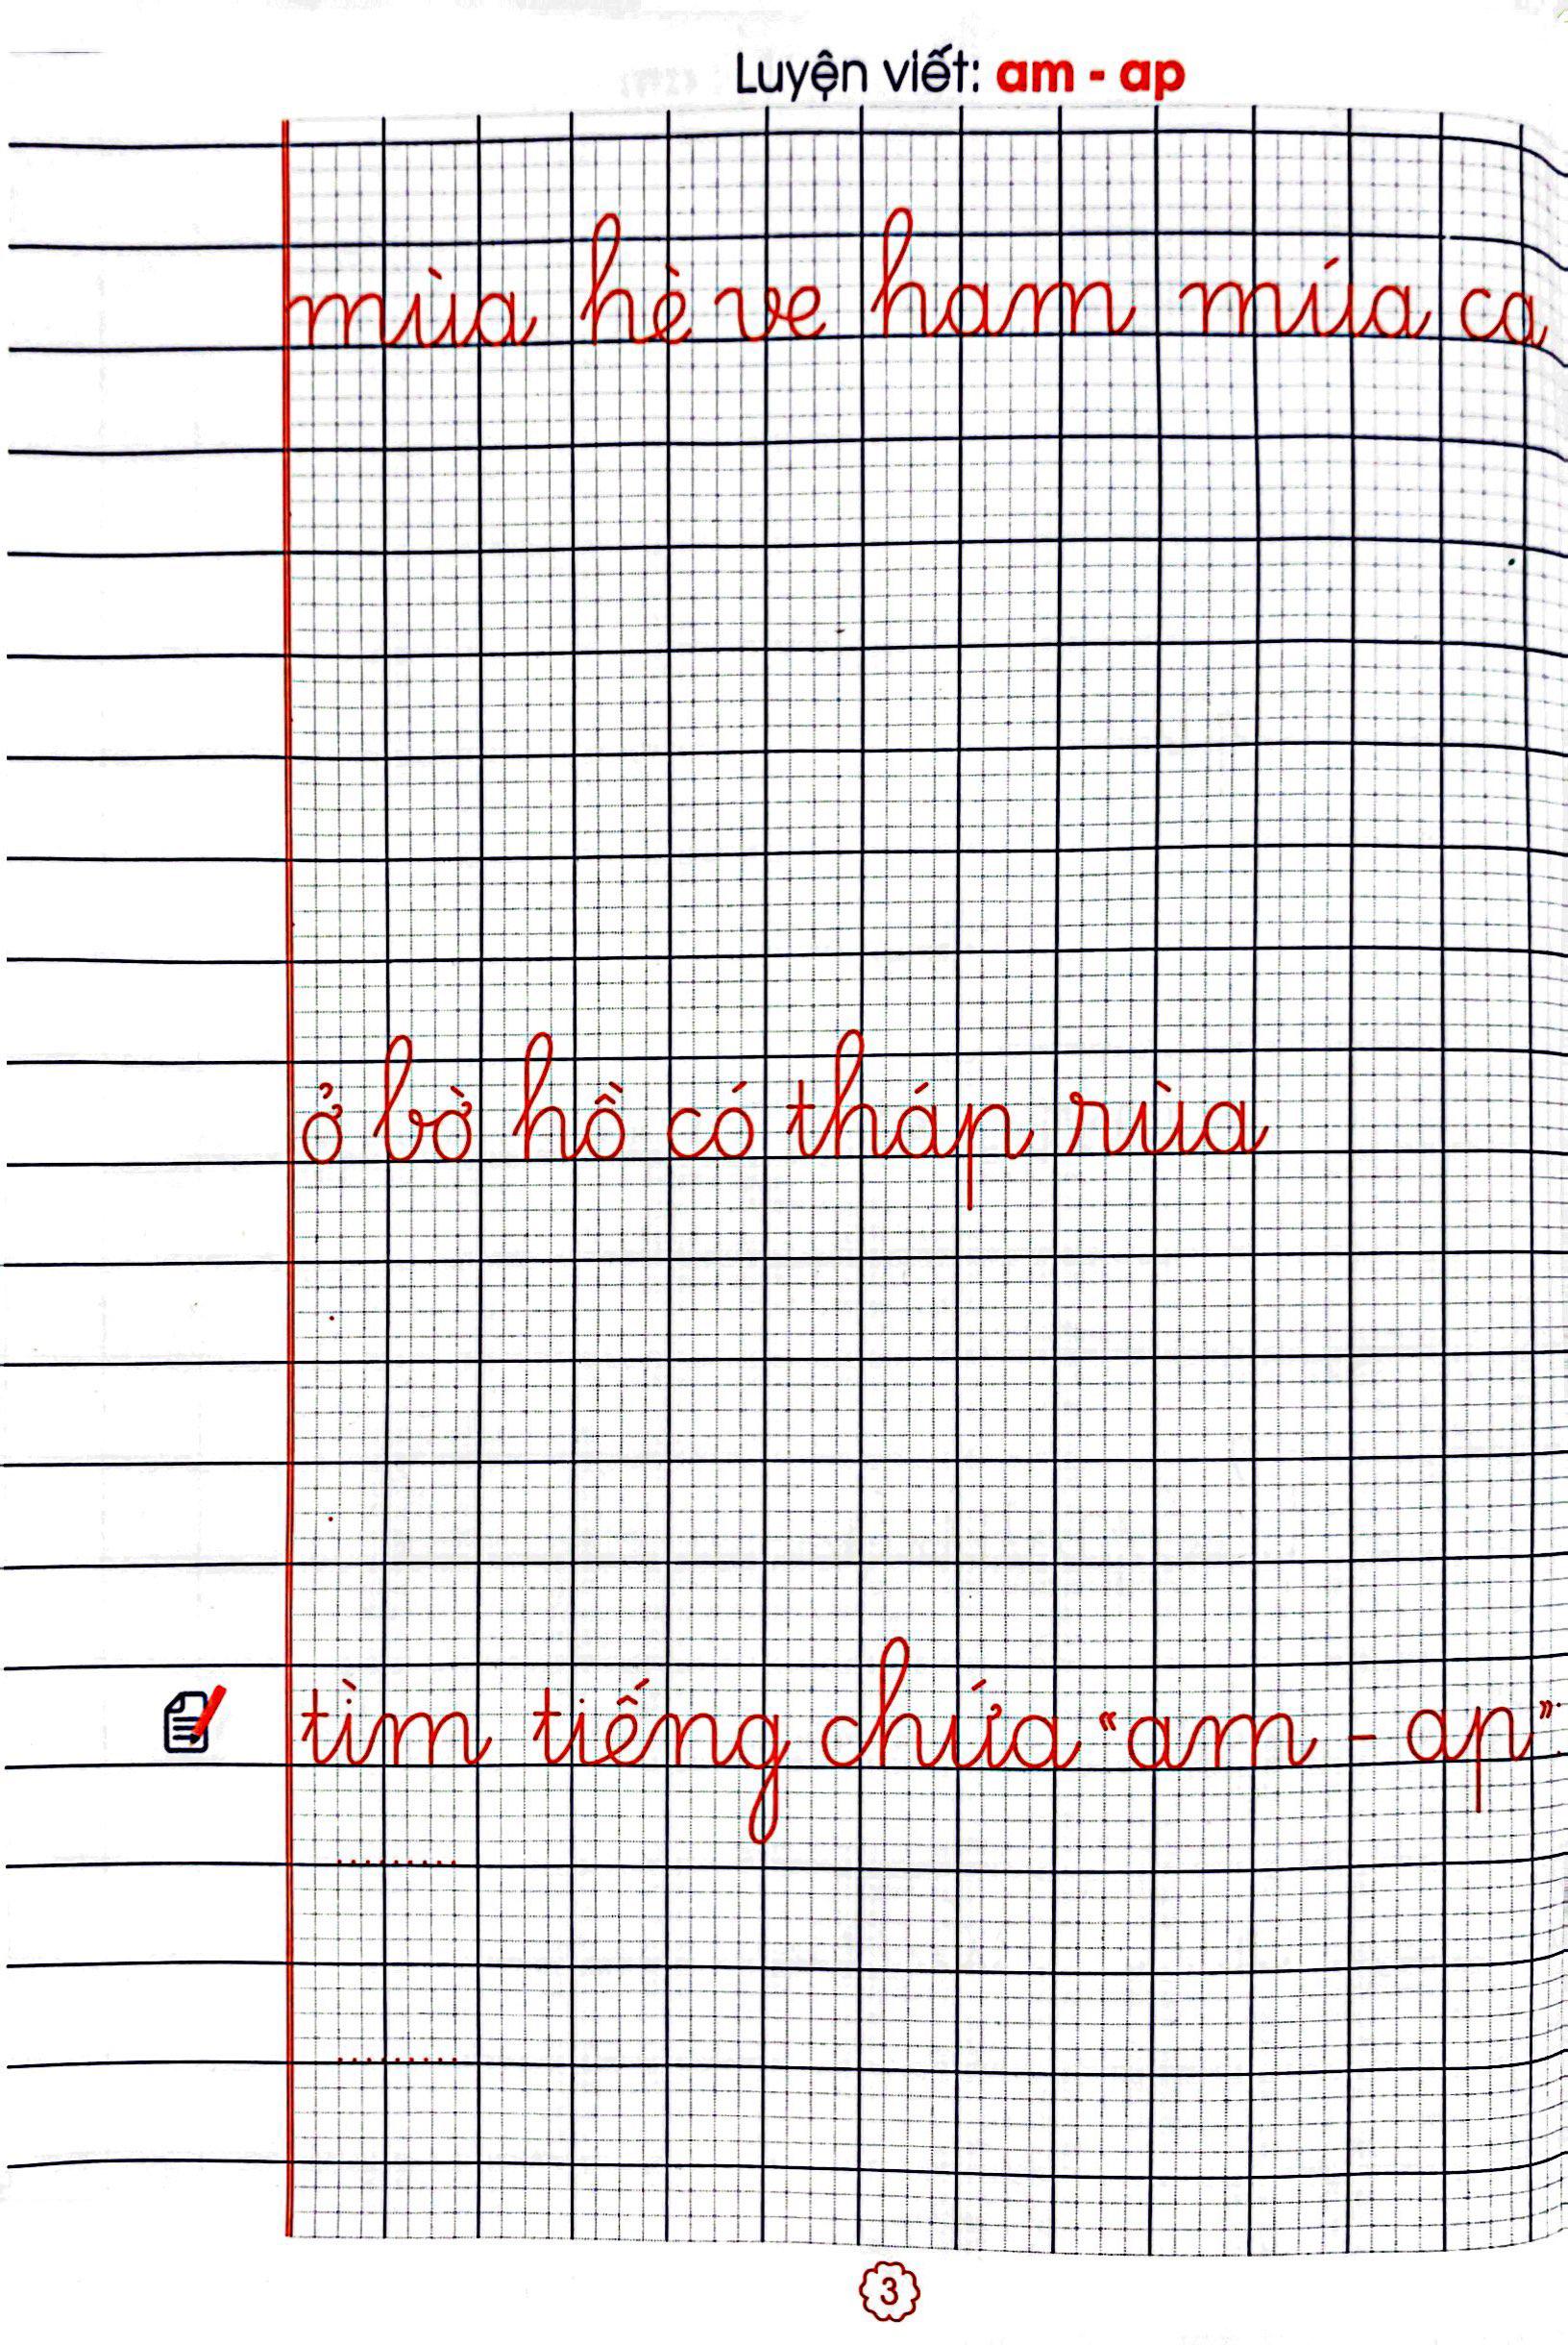 Luyện viết: am - ap
mùa hè ve ham múa ca
ở bờ hồ có tháp rùa
tìm tiếng chứa “am - ap”:
.........
.........
3